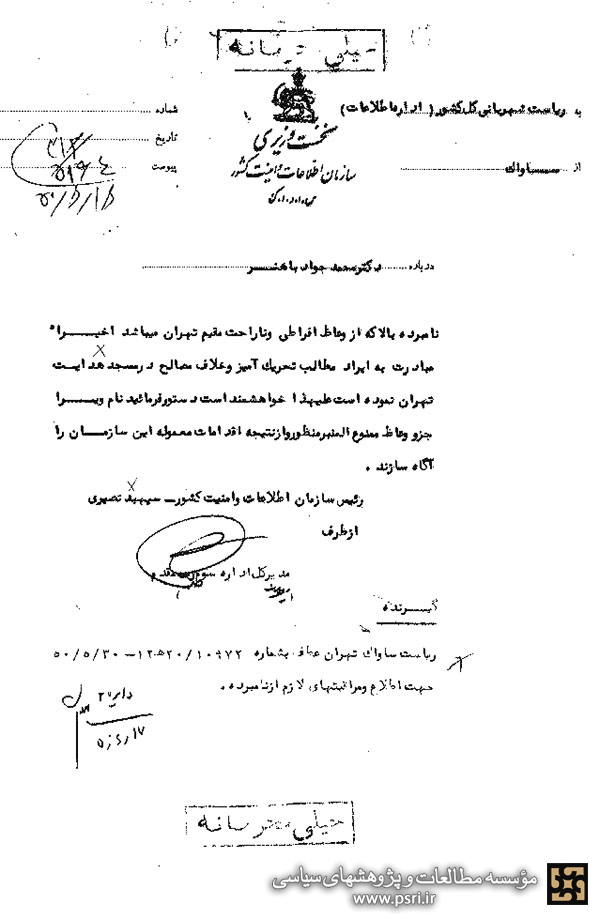 خیلی محرمانه
به ریاست شهربانی کل کشور (اداره اطلاعات)
شماره
نخست وزیری
تاریخ
از ساواک
سازمان اطلاعات و امنیت کشور
پیوست
درباره دکتر محمد جواد باهنر
نامبرده بالا که از وعاظ افراطی وناراحت مقیم تهران میباشد اخیراً
مبادرت به ایراد مطالب تحریک آمیز وخلاف مصالح در مسجد هدایت
تهران نموده است علیهذا خواهشمند است دستور فرمائید نام ویرا
جزو وعاظ ممنوع المنبر منظور واز نتیجه اقدامات معموله این سازمان را
آگاه سازند .
رئیس سازمان اطلاعات وامنیت کشور - سپهبد نصیری
از طرف
مدیرکل اداره سوم مقدم
گیرنده
ریاست ساواک تهران عطف بشماره ۱۰۹۷۲/۲۰ - ۵۰/۵/۳۰
جهت اطلاع ومراقبتهای لازم از نامبرده .
خیلی محرمانه
مؤسسه مطالعات و پژوهشهای سیاسی
www.psri.ir